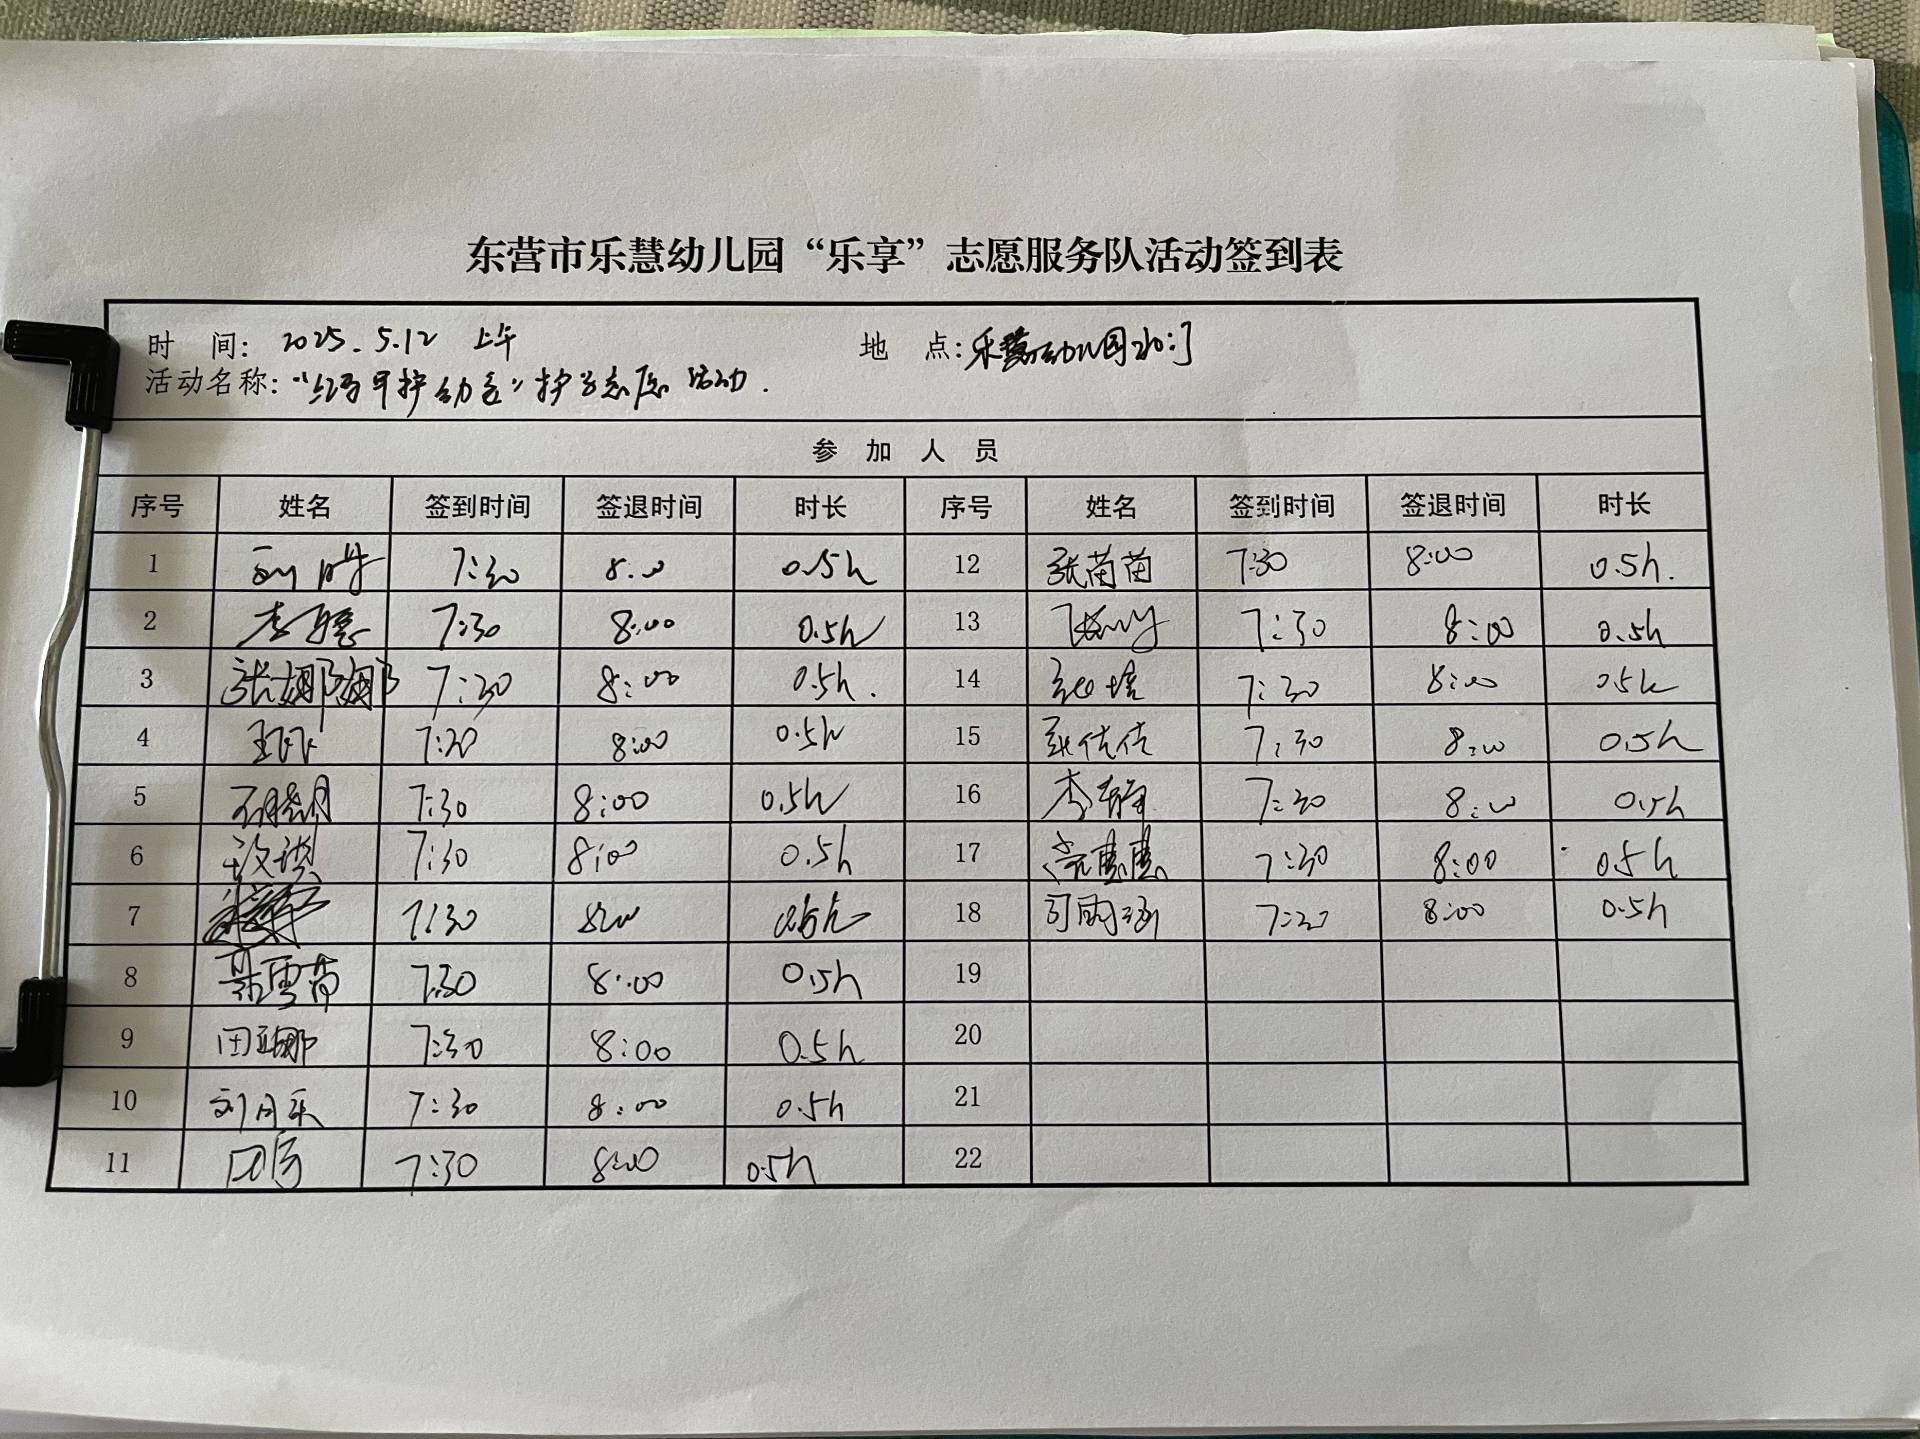 东营市乐慧幼儿园“乐享”志愿服务队活动签到表
时 间: 2025.5.12 上午 地 点: 乐慧幼儿园北门
活动名称: 护学志愿活动.
参 加 人 员
序号 姓名 签到时间 签退时间 时长 序号 姓名 签到时间 签退时间 时长
1 7:30 8:00 0.5h 12 张苗苗 7:30 8:00 0.5h.
2 7:30 8:00 0.5h 13 7:30 8:00 0.5h
3 张娜娜 7:30 8:00 0.5h. 14 7:30 8:00 0.5h
4 7:30 8:00 0.5h 15 张佳佳 7:30 8:00 0.5h
5 7:30 8:00 0.5h 16 李静 7:30 8:00 0.5h
6 7:30 8:00 0.5h 17 7:30 8:00 0.5h
7 7:30 8:00 0.5h 18 7:30 8:00 0.5h
8 7:30 8:00 0.5h 19
9 田亚娜 7:30 8:00 0.5h 20
10 刘月乐 7:30 8:00 0.5h 21
11 7:30 8:00 0.5h 22